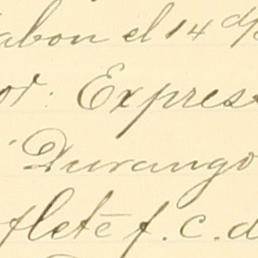 jabon el 14 dp
or. Express
"Durango
flete f. c. d